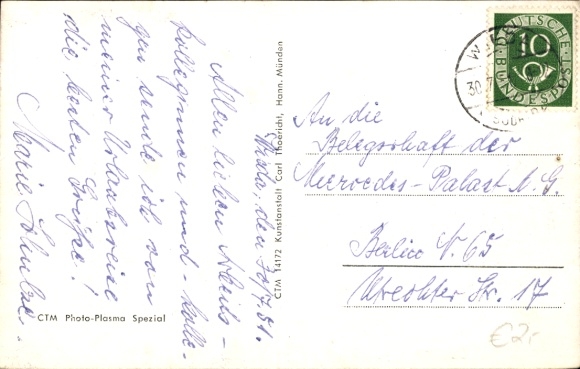 den 30/7.51.
Allen lieben Arbeits-
kolleginnen und - kolle-
gen sende ich von
meiner Urlaubsreise
die besten Grüße!
Marie
CTM Photo-Plasma Spezial
CTM 14172 Kunstanstalt Carl Thoericht, Hann. Münden
DEUTSCHE
10
BUNDESPOST
30.
An die
Belegschaft der
Mercedes-Palast N.G.
Berlin N. 65
Utrechter Str. 17
€2,-